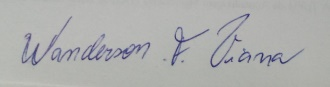 Wanderson F. Viana